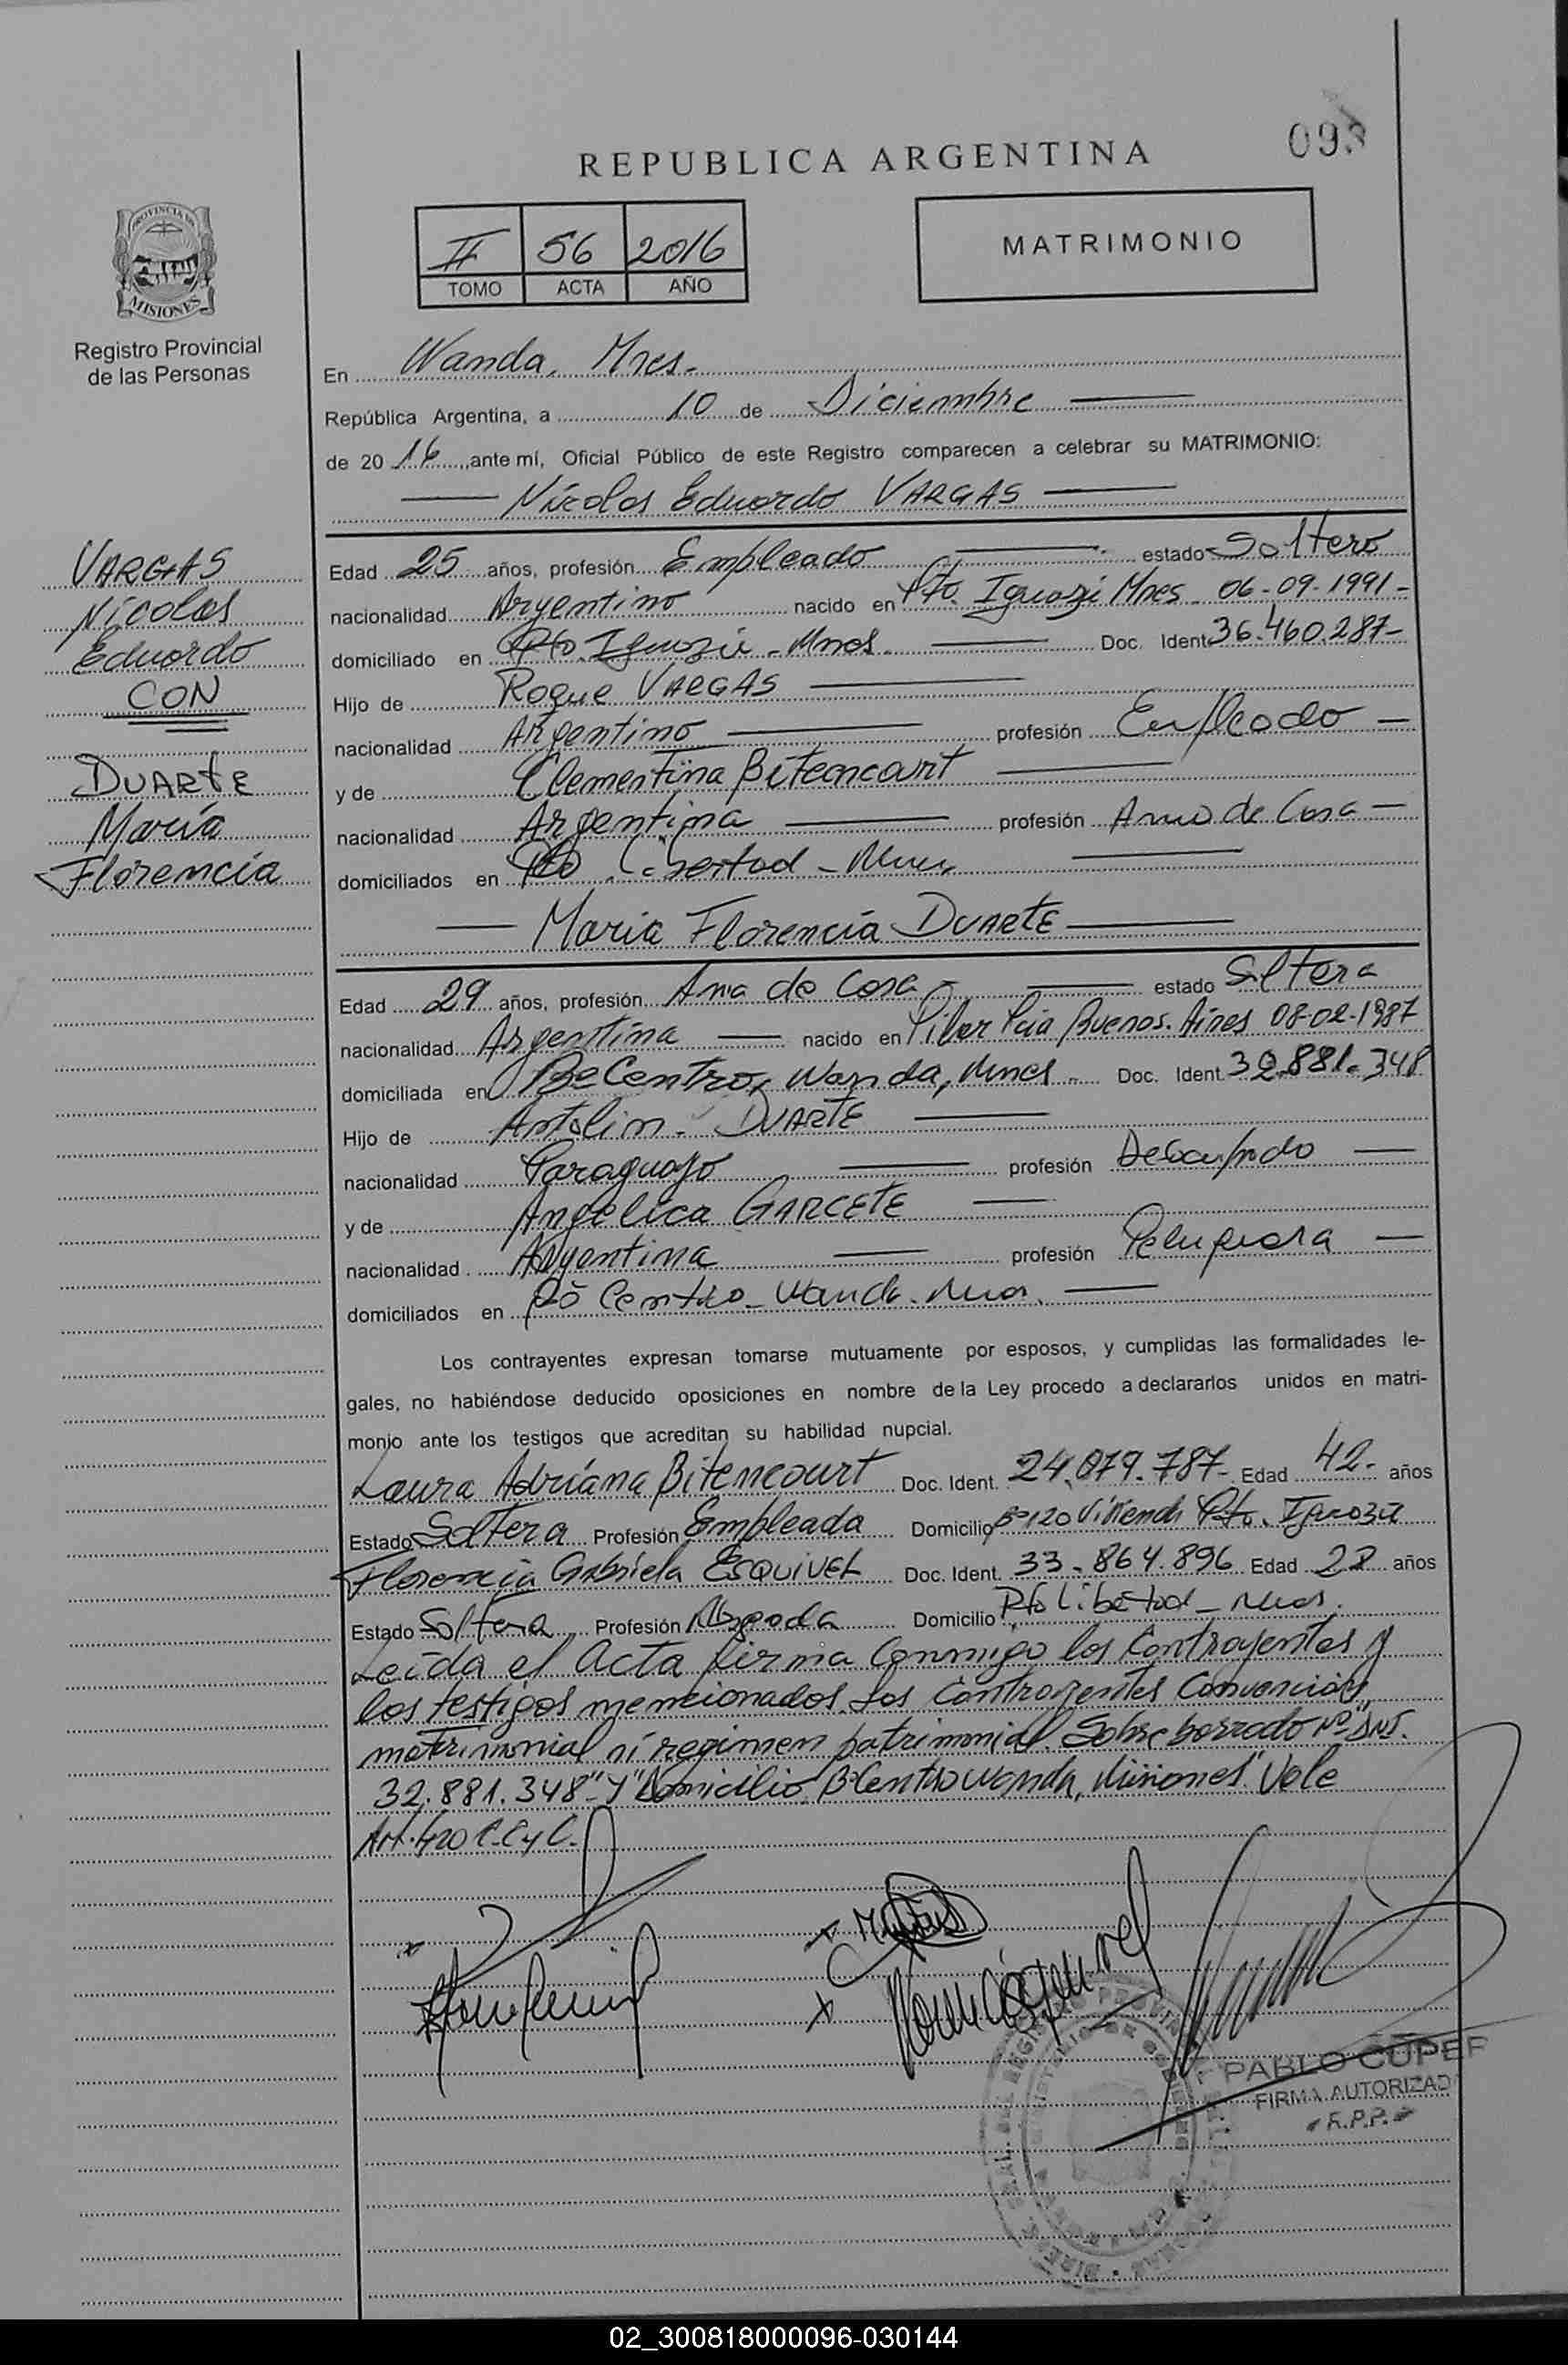 093
REPUBLICA ARGENTINA
II 56 2016
TOMO ACTA AÑO
MATRIMONIO
PROVINCIA DE
MISIONES
Registro Provincial
de las Personas
En Wanda, Mnes.
República Argentina, a 10 de Diciembre
de 20 16, ante mí, Oficial Público de este Registro comparecen a celebrar su MATRIMONIO:
Nícolas Eduardo VARGAS
VARGAS
Nícolas
Eduardo
CON
DUARTE
María
Florencia
Edad 25 años, profesión Empleado estado Soltero
nacionalidad Argentino nacido en Pto. Iguazú Mnes. 06-09-1991-
domiciliado en Pto. Iguazú - Mnes. Doc. Ident. 36.460.287-
Hijo de Roque VARGAS
nacionalidad Argentino profesión Empleado
y de Clementina Bitencourt
nacionalidad Argentina profesión Ama de Casa
domiciliados en Pto. Libertad - Mnes.
Maria Florencia DUARTE
Edad 29 años, profesión Ama de Casa estado Soltera
nacionalidad Argentina nacido en Pilar Pcia Buenos Aires 08-02-1987
domiciliada en Bº Centro, Wanda, Mnes. Doc. Ident. 32.881.348
Hijo de Antolin DUARTE
nacionalidad Paraguayo profesión Desocupado
y de Angelica GARCETE
nacionalidad Argentina profesión Peluquera
domiciliados en Bº Centro - Wanda. Mnes.
Los contrayentes expresan tomarse mutuamente por esposos, y cumplidas las formalidades le-
gales, no habiéndose deducido oposiciones en nombre de la Ley procedo a declararlos unidos en matri-
monio ante los testigos que acreditan su habilidad nupcial.
Laura Adriana Bitencourt Doc. Ident. 24.079.787- Edad 42- años
Estado Soltera Profesión Empleada Domicilio Bº 120 Viviendas Pto. Iguazú
Florencia Gabriela ESQUIVEL Doc. Ident. 33.864.896 Edad 28 años
Estado Soltera Profesión Abogada Domicilio Pto Libertad - Mnes.
Leida el Acta firma conmigo los Contrayentes y
los testigos mencionados. Los Contrayentes Convención
matrimonial ni regimen patrimonial. Sobre borrado Nº "DNI.
32.881.348" Y "Domicilio Bº Centro Wanda, Misiones" Vale
Art. 420 C.C y C.
PABLO CUPER
FIRMA AUTORIZAD
R.P.P.
02_300818000096-030144